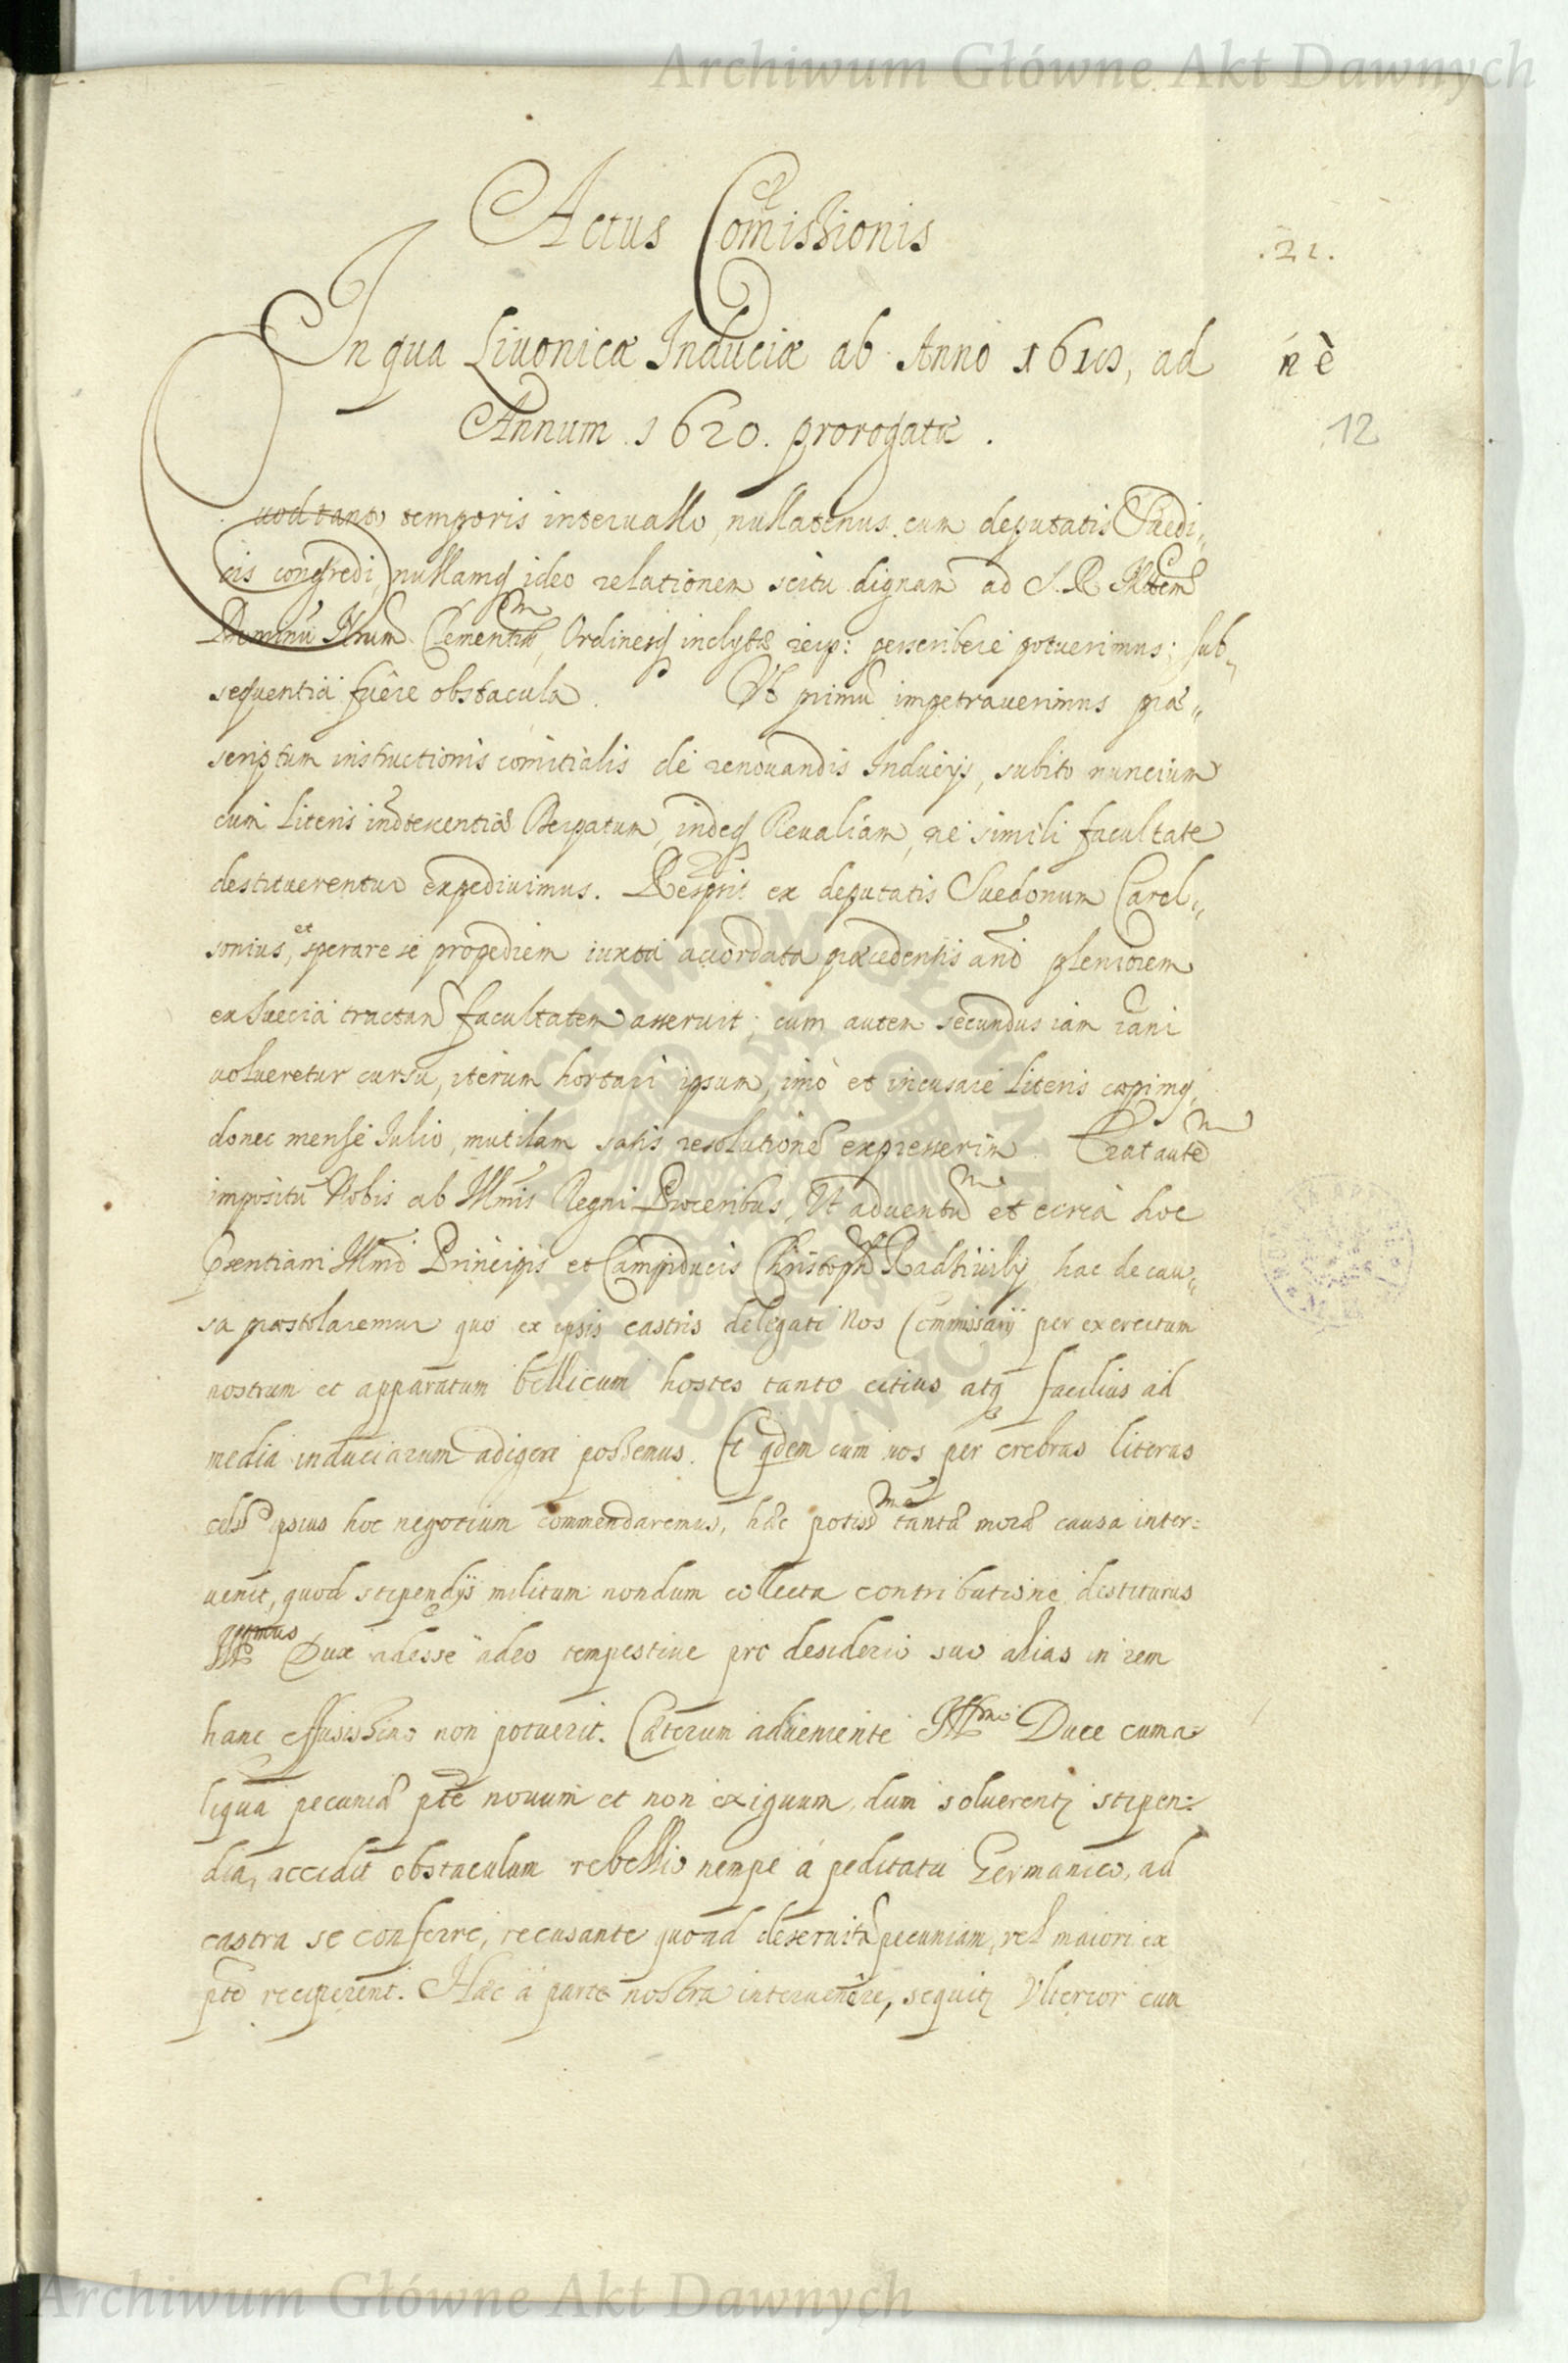 Archiwum Główne Akt Dawnych
Actus Com̃issionis
.21.
In qua Livonicæ Induciæ ab Anno 1618, ad
n è
Annum 1620. prorogatæ.
12
Quod tanto temporis interuallo, nullatenus cum deputatis Suedi„
cis congredi, nullamq ideo relationem scitu dignam ad S. R. Mttem
Dominũ Nrum Clementissm, Ordinesq inclytæ reip: perscribere potuerimus; sub„
sequentia fuêre obstacula. Vt primũ impetrauerimus præ„
scriptum instructionis comitialis de renouandis Inducijs, subito nuncium
cum Literis Derpatum, indeq Reualiam, ne simili facultate
destituerentur expediuimus. Respns ex deputatis Suedonum Carol„
sonius, et sperare se propediem iuxta accordata præcedentis anni pleniorem
ex Suecia tractan facultatem asseruit; cum autem secundus iam
volueretur cursu, iterum hortari ipsum, imò et incusare Literis cæpimq,
donec mense Iulio, mutilam satis resolutionẽ expresserim. Erat autem
impositũ Nobis ab Illmis Regni Proceribus, Vt aduentum et circa hoc
Illmi Principis et Campiducis Christoph Radziwily hac de cau„
sa præstolaremur quo ex ipsis castris delegati Nos Commissarij per exercitum
nostrum et apparatum bellicum hostes tanto citius atq facilius ad
media induciarum adigere possemus. Et qdem cum nos per crebras literas
cels ipsius hoc negotium commendaremus, hæc potissm tantæ moræ causa inter:
uenit, quod stipendijs militum nondum collecta contributione, destitutus
Illmus Dux adesse adeo tempestiue pro desiderio suo alias in rem
hanc effusissimo non potuerit. Cæterum adueniente Illmo Duce cum a-
liqua pecuniæ pte nouum et non exiguum, dum soluerentz stipen:
dia, accidit obstaculum rebellio nempe á peditatu Germanico, ad
castra se conferre, recusante quoad deseruitã pecuniam, vel maiori ex
pte reciperent. Hæc á parte nostra interuenêre, sequitz Vlterior cum
Archiwum Główne Akt Dawnych